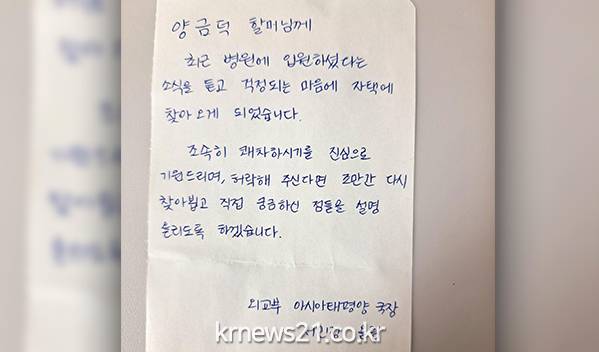 양금덕 할머님께
최근 병원에 입원하셨다는
소식을 듣고 걱정되는 마음에 자택에
찾아오게 되었습니다.
조속히 쾌차하시기를 진심으로
기원드리며, 허락해 주신다면 조만간 다시
찾아뵙고 직접 궁금하신 점들을 설명
올리도록 하겠습니다.
외교부 아시아태평양 국장
krnews21.co.kr